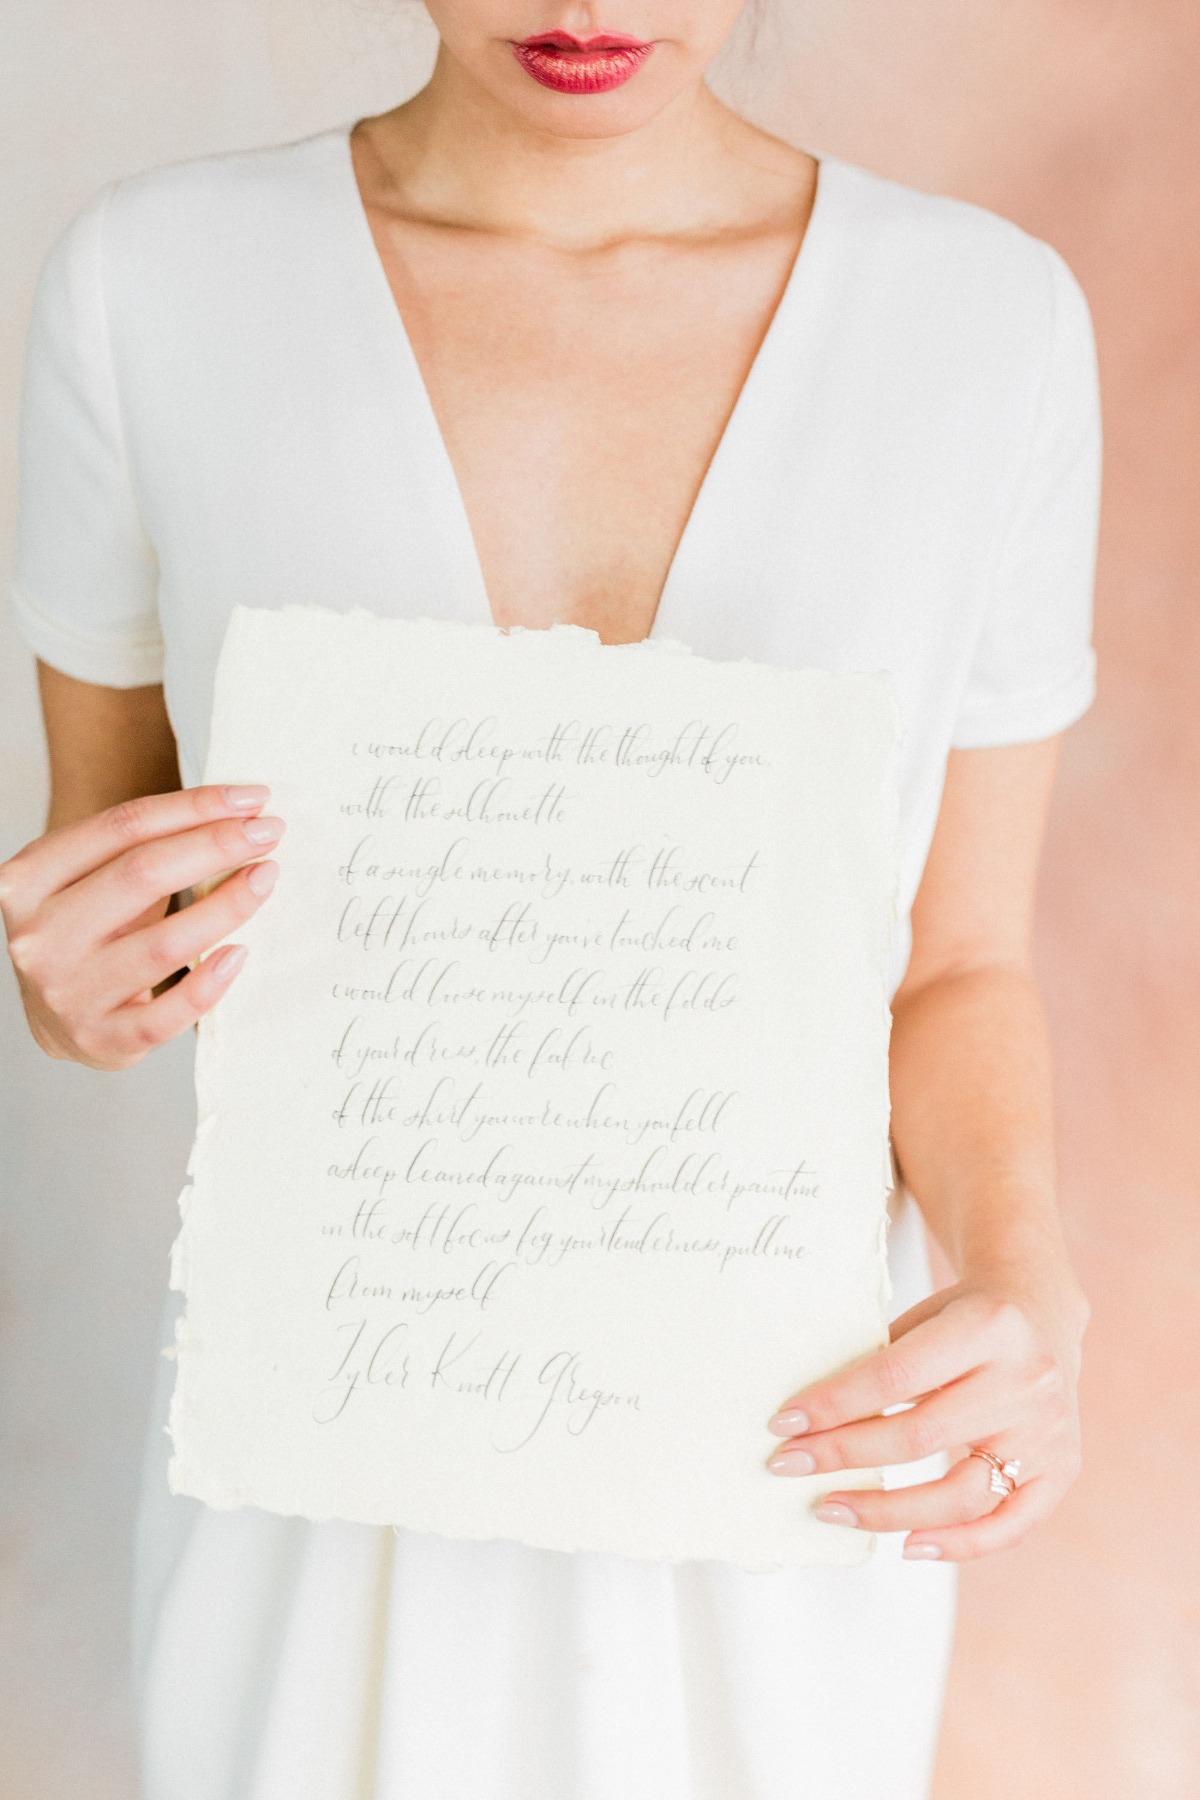 i would sleep with the thought of you,
with the silhouette
of a single memory, with the scent
left hours after you've touched me
i would loose myself in the folds
of your dress, the fabric
of the shirt you wore when you fell
asleep leaned against my shoulder paint me
in the soft focus fog your tenderness, pull me
from myself
Tyler Knott Gregson